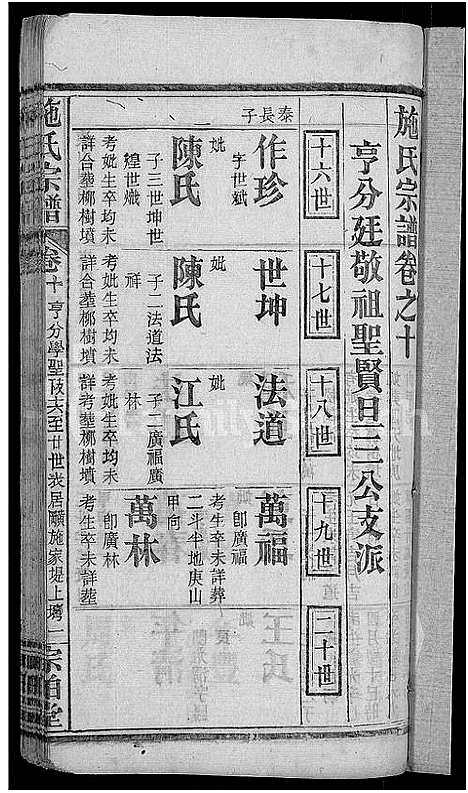 施氏宗譜卷之十
亨分廷敬祖聖賢旦三公支派
十六世
十七世
十八世
十九世
二十世
泰長子
作珍
字世斌
妣
陳氏
子三世坤世
煌世熾
考妣生卒均未
詳合塟柳樹墳
世坤
妣
陳氏
子二法道法
祥
考妣生卒均未
詳合塟柳樹墳
法道
妣
江氏
子二廣福廣
林
考妣生卒均未
詳考塟柳樹墳
萬福
卽廣福
考生卒未詳葬
二斗半地庚山
甲向
萬林
卽廣林
考生卒未詳塟
施氏宗譜
卷十
亨分學聖枝十六至廿世表居
施家堤上
二
宗伯堂